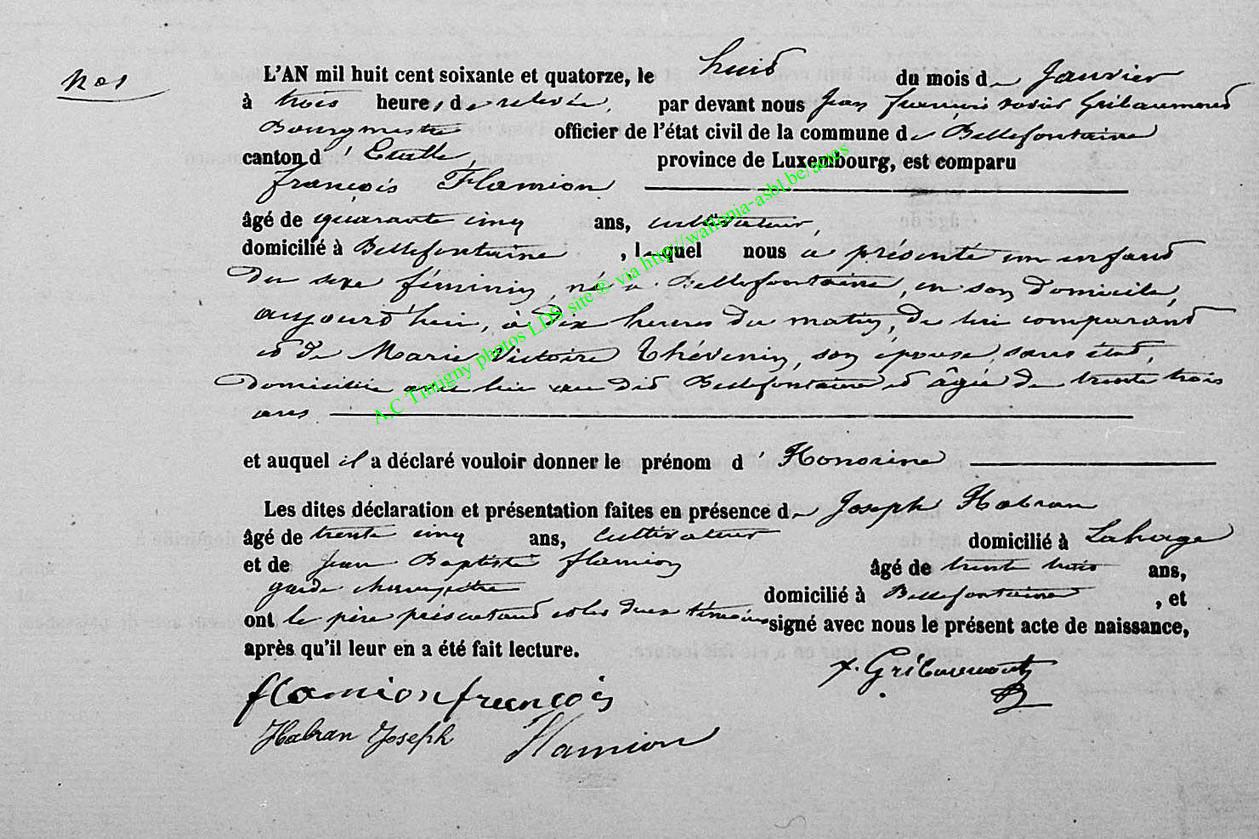 No 1
L'AN mil huit cent soixante et quatorze, le huit du mois de Janvier
à trois heures de relevée, par devant nous Jean françois xavier Gribaumont
Bourgmestre officier de l'état civil de la commune de Bellefontaine
canton d'Etalle, province de Luxembourg, est comparu
françois Flamion
âgé de quarante cinq ans, cultivateur,
domicilié à Bellefontaine, lequel nous a présenté un enfant
du sexe féminin, né à Bellefontaine, en son domicile,
aujourd'hui, à dix heures du matin, de lui comparant
et de Marie Victoire Thévenin, son épouse, sans état,
domiciliée avec lui au dit Bellefontaine et âgée de trente trois
ans
et auquel il a déclaré vouloir donner le prénom d'Honorine
Les dites déclaration et présentation faites en présence de Joseph Habran
âgé de trente cinq ans, cultivateur domicilié à Lahage
et de Jean Baptiste flamion âgé de trente trois ans,
garde champêtre domicilié à Bellefontaine, et
ont le père présentant et les deux témoins signé avec nous le présent acte de naissance,
après qu'il leur en a été fait lecture.
f. Gribaumont
flamion françois
Habran Joseph flamion
A.C Tintigny photos LDS site © via http://wallonia-asbl.be/actes